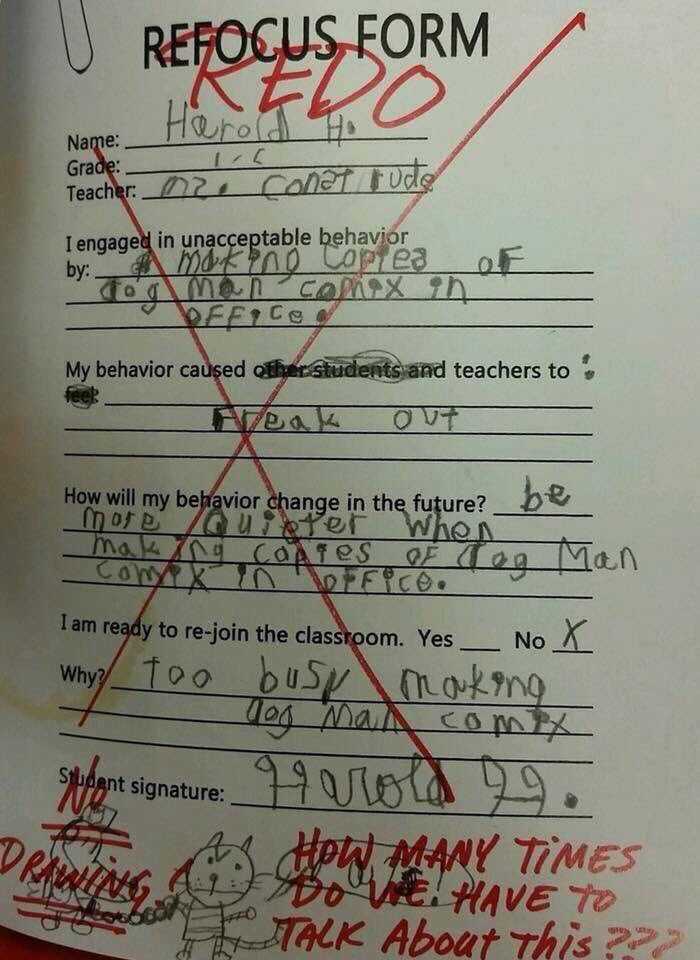 REFOCUS FORM
REDO
Name: Harold H.
Grade:
Teacher: mz. construde
I engaged in unacceptable behavior
by: making copies of
dog man comix in
office.
My behavior caused other students and teachers to :
feel:
Freak out
How will my behavior change in the future? be
more Quieter when
making copies of dog Man
comix in office.
I am ready to re-join the classroom. Yes ___ No X
Why? too busy making
dog Man comix
Student signature: Harold H.
No
DRAWING!
HOW MANY TiMES
DO WE HAVE TO
TALK About This???